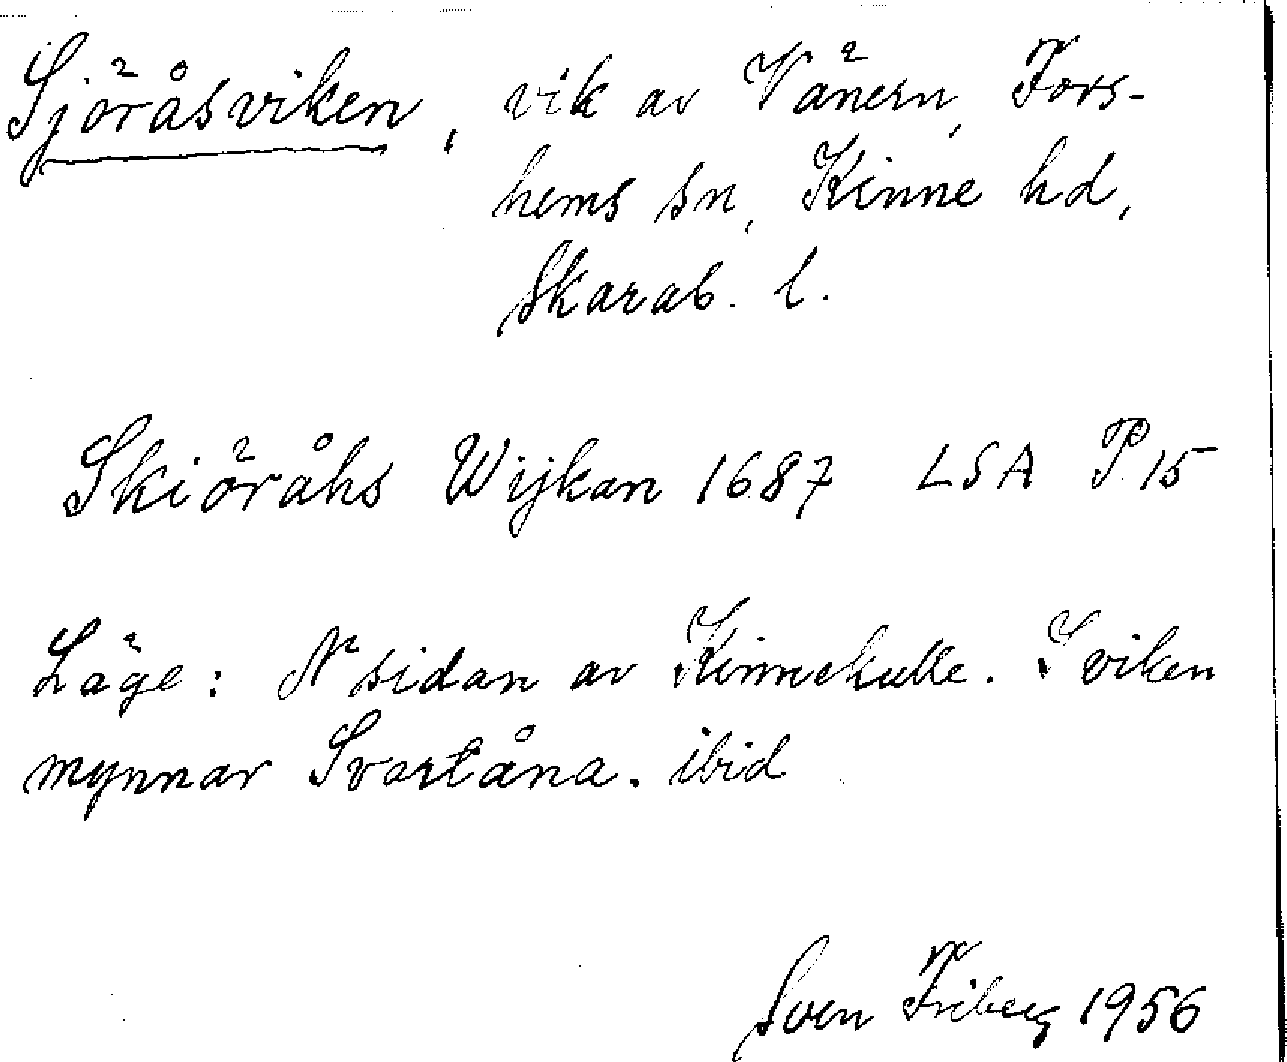 Sjöråsviken, vik av Vänern, Fors-
hems sn, Kinne hd,
Skarab. l.
Skiöråhs Wijkan 1687 LSA P.15
Läge: N sidan av Kinnekulle. I viken
mynnar Svartåna. ibid
Sven Friberg 1956